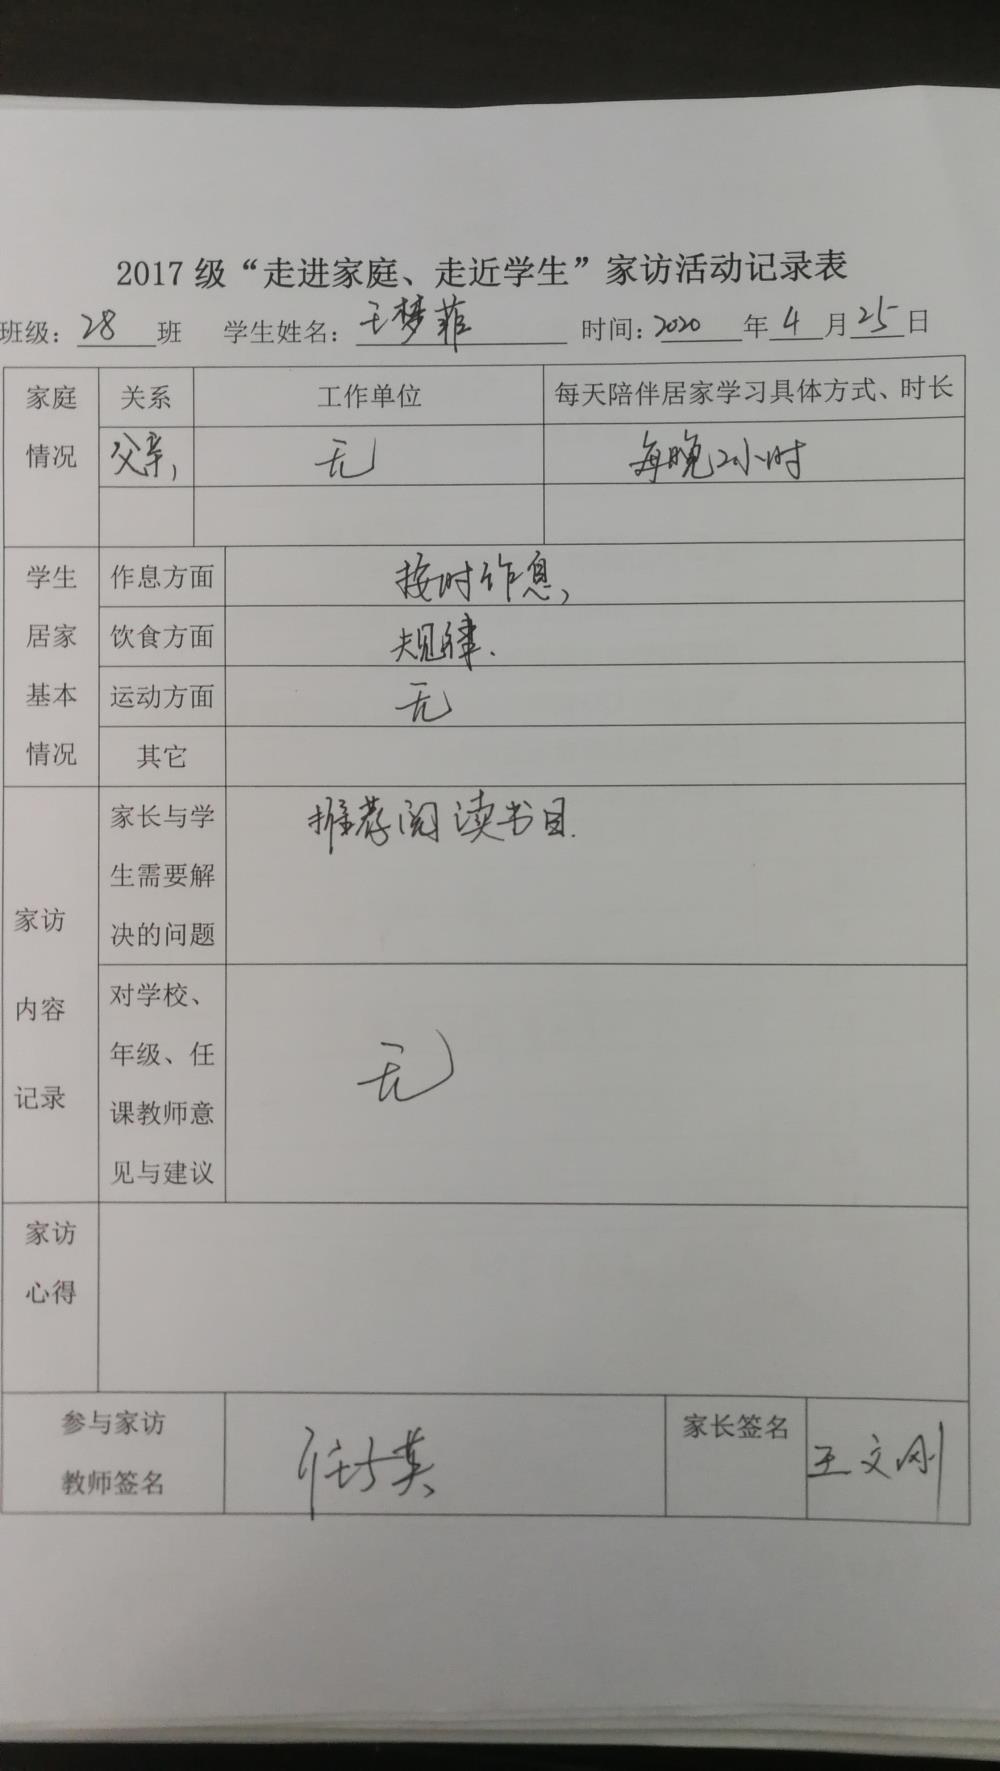 2017 级“走进家庭、走近学生”家访活动记录表
班级：28 班 学生姓名：王梦菲 时间：2020 年 4 月 25 日
家庭情况 关系 工作单位 每天陪伴居家学习具体方式、时长
父亲， 无 每晚2小时
学生居家基本情况 作息方面 按时作息，
饮食方面 规律.
运动方面 无
其它
家访内容记录 家长与学生需要解决的问题 推荐阅读书目.
对学校、年级、任课教师意见与建议 无
家访心得
参与家访教师签名 家长签名 王文刚